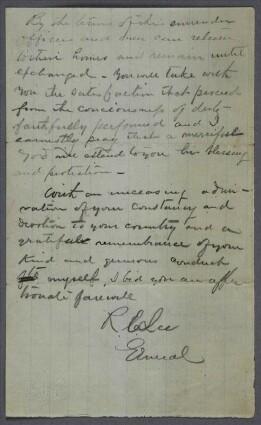 By the terms of this surrender
officers and men can return
to their homes and remain until
exchanged - You will take with
you the satisfaction that proceeds
from the consciousness of duty
faithfully performed and I
earnestly pray that a merciful
God will extend to you his blessing
and protection -
With an unceasing admi-
ration of your constancy and
devotion to your country and a
grateful remembrance of your
kind and generous conduct
myself, I bid you an affec
tionate farewell
R E Lee
General